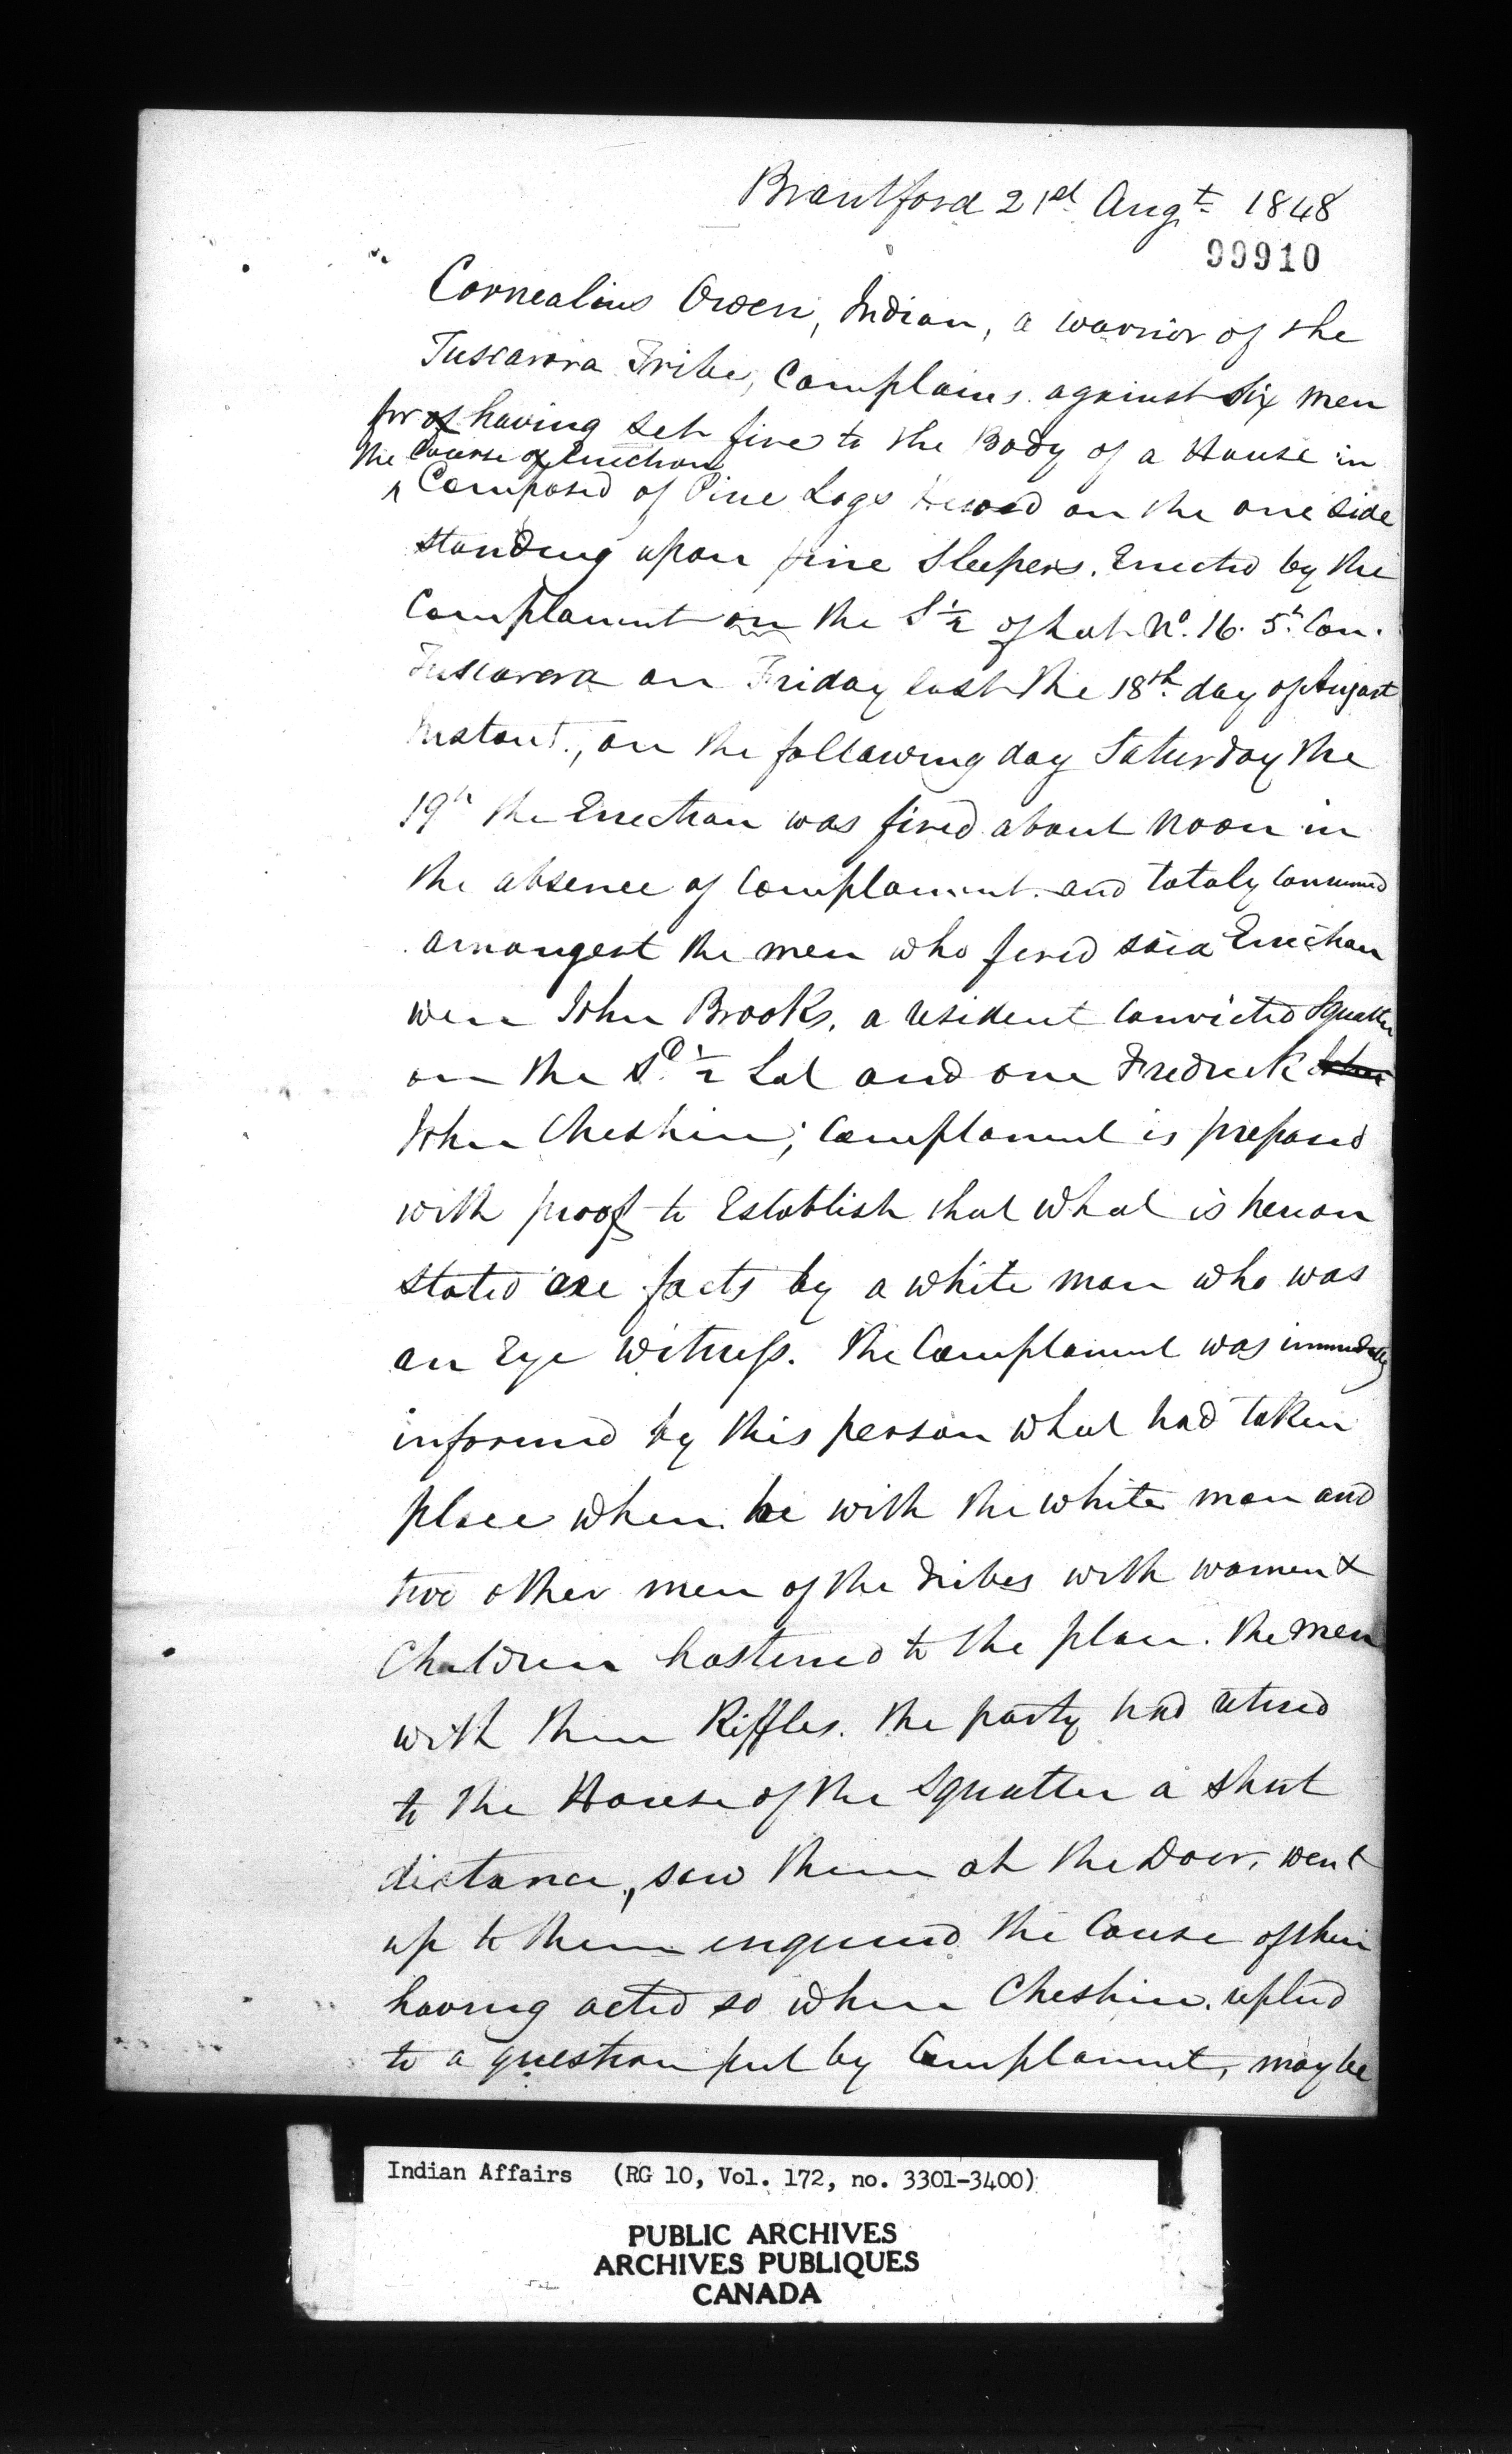 Brantford 21st Augt 1848
99910
Cornealius Owen, Indian, a warrior of the
Tuscarora Tribe, Complains against Six men
for having set fire to the Body of a House in
the Course of Erection
Composed of Pine Logs hewed on the one side
standing upon pine Sleepers. Erected by the
Complainant on the S½ of Lot No. 16. 5th Con.
Tuscarora on Friday last the 18th day of August
Instant., on the following day Saturday the
19th the Erection was fired about noon in
the absence of Complainant. and totaly Consumed
amongest the men who fired said Erection
were John Brooks, a resident Convicted Squatter
on the Sd ½ Lot and one Fredrick
John Cheshire; Complainant is prepared
with proof to Establish that what is hereon
stated are facts by a white man who was
an Eye witness. The Complainant was immediately
informed by this person what had taken
place when he with the white man and
two other men of the tribes with women &
Children hastened to the place. the men
with their Riffles. the party had retired
to the House of the Squatter a short
distance, saw them at the Door, went
up to them enquired the Cause of their
having acted so when Cheshire replied
to a question put by Complainant, may be
Indian Affairs (RG 10, Vol. 172, no. 3301-3400)
PUBLIC ARCHIVES
ARCHIVES PUBLIQUES
CANADA